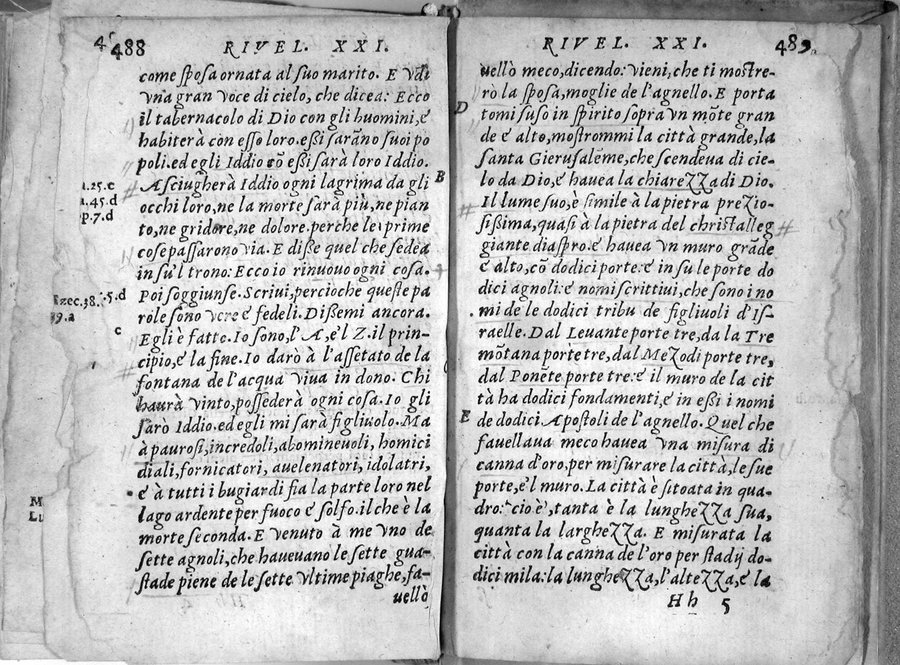 488
RIVEL. XXI.
come sposa ornata al suo marito. E vdi
vna gran voce di cielo, che dicea: Ecco
il tabernacolo di Dio con gli huomini, é
habiterà con esso loro. essi sarãno suoi po
poli. ed egli Iddio cõ essi sarà loro Iddio.
Asciugherà Iddio ogni lagrima da gli
occhi loro, ne la morte sarà più, ne pian
to, ne gridore, ne dolore. perche le i prime
cose passarono via. E disse quel che sedea
in su'l trono: Ecco io rinuouo ogni cosa.
Poi soggiunse. Scrivi, percioche queste pa
role sono vere é fedeli. Dissemi ancora.
Egli è fatto. Io sono, l'A, e'l Z. il prin-
cipio, é la fine. Io darò à l'assetato de la
fontana de l'acqua viva in dono. Chi
haurà vinto, possederà ogni cosa. Io gli
sarò Iddio. ed egli mi sarà figliuolo. Ma
à paurosi, increduli, abomineuoli, homici
diali, fornicatori, auelenatori, idolatri,
é à tutti i bugiardi fia la parte loro nel
lago ardente per fuoco é solfo. il che è la
morte seconda. E venuto à me vno de
sette agnoli, che haueuano le sette gua-
stade piene de le sette vltime piaghe, fa-
uellò
B
1.25.c
1.45.d
p.7.d
Ezec.38. 5.d
39.a
c
M
Li
RIVEL. XXI.
489
uellò meco, dicendo: vieni, che ti mostre-
rò la sposa, moglie de l'agnello. E porta
tomi suso in spirito sopra vn mõte gran
de é alto, mostrommi la città grande, la
santa Gierusalẽme, che scendeua di cie-
lo da Dio, é hauea la chiarezza di Dio.
Il lume suo, è simile à la pietra prezio-
sissima, quasi à la pietra del christalleg
giante diaspro: é hauea vn muro grãde
é alto, cõ dodici porte: é in su le porte do
dici agnoli: é nomi scrittiui, che sono i no
mi de le dodici tribu de figliuoli d'Is-
raelle. Dal Leuante porte tre, da la Tre
mõtana porte tre, dal Mezodi porte tre,
dal Ponẽte porte tre: é il muro de la cit
tà ha dodici fondamenti, é in essi i nomi
de dodici Apostoli de l'agnello. Quel che
fauellaua meco hauea vna misura di
canna d'oro, per misurare la città, le sue
porte, é'l muro. La città è sitoata in qua-
dro: cio è, tanta è la lunghezza sua,
quanta la larghezza. E misurata la
città con la canna de l'oro per stadij do-
dici mila: la lunghezza, l'altezza, é la
D
E
Hh 5